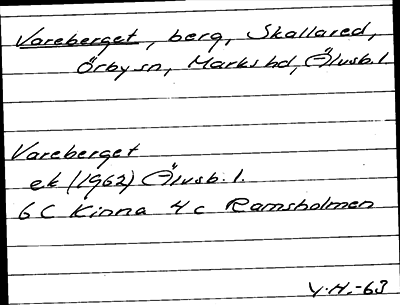 Vareberget, berg, Skallared,
Örby sn, Marks hd, Älvsb. l
Vareberget
ek (1962) Älvsb. l.
6 C Kinna 4 c Ramsholmen
Y.H.-63